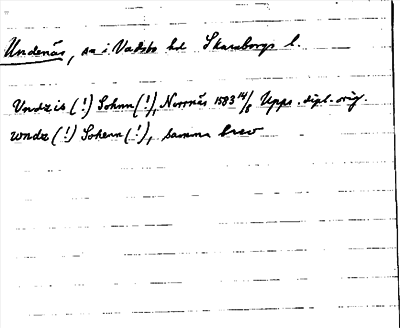 Undenäs, sn i Vadsbo hd Skaraborgs l.
Vndz is (!) Sohnn (!), Norrnäs 1583 14/8 Upps. dipl. orig.
wndz (!) Sohenn (!), samma brev